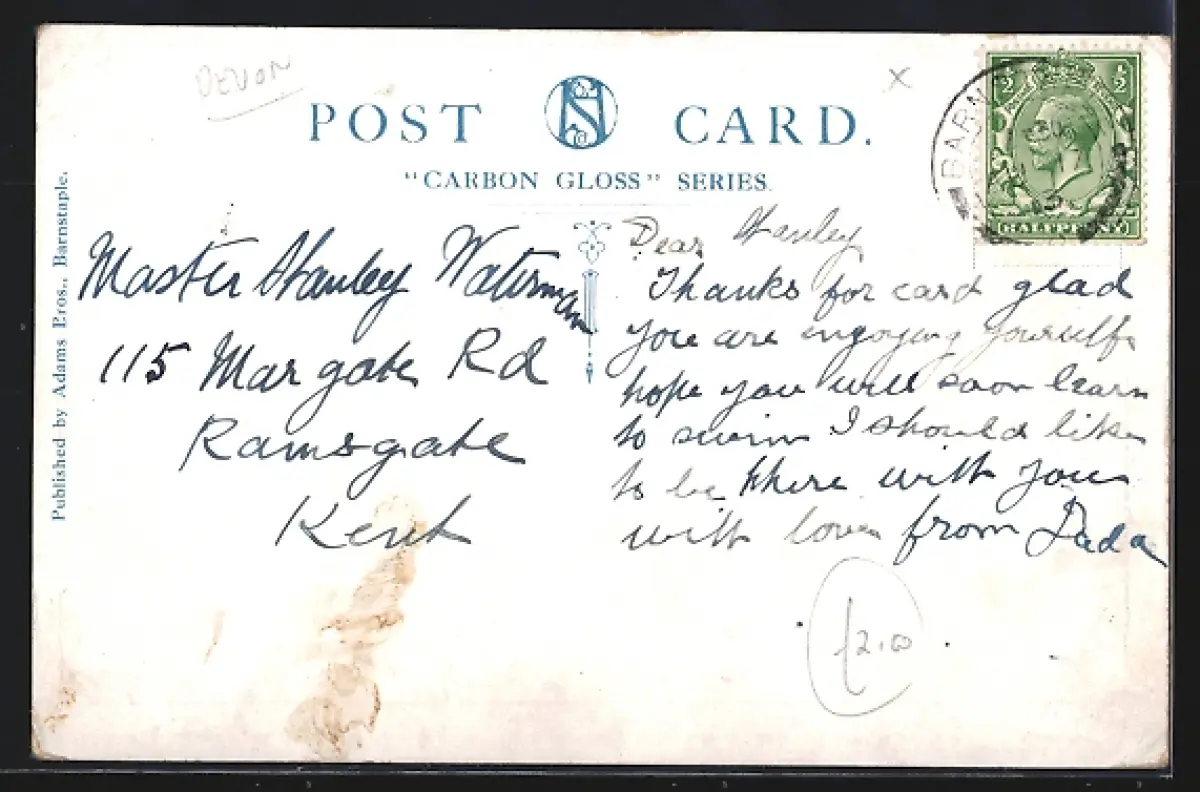 DEVON
x
POST NS CARD.
"CARBON GLOSS" SERIES.
Published by Adams Bros., Barnstaple.
½ ½
HALFPENNY
BARN
Master Stanley Waterman
115 Margate Rd
Ramsgate
Kent
Dear Stanley
Thanks for card glad
you are engoying yourselfs
hope you will soon learn
to swim I should like
to be there with you
with love from Dada
£2.00